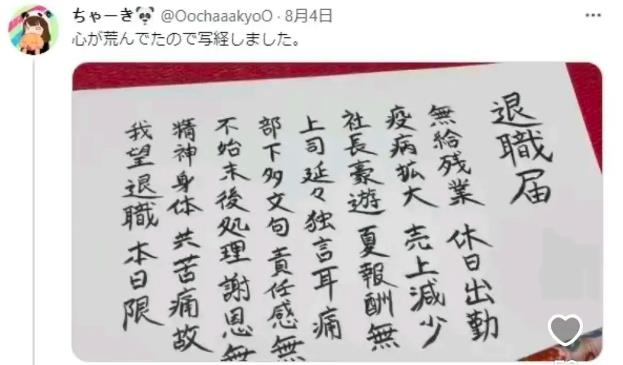 ちゃーき🐼 @OochaaakyoO · 8月4日
心が荒んでたので写経しました。
退職届
無給残業 休日出勤
疫病拡大 売上減少
社長豪遊 夏報酬無
上司延々独言耳痛
部下多文句 責任感無
不始末後処理 謝恩無
精神身体 共苦痛故
我望退職 本日限